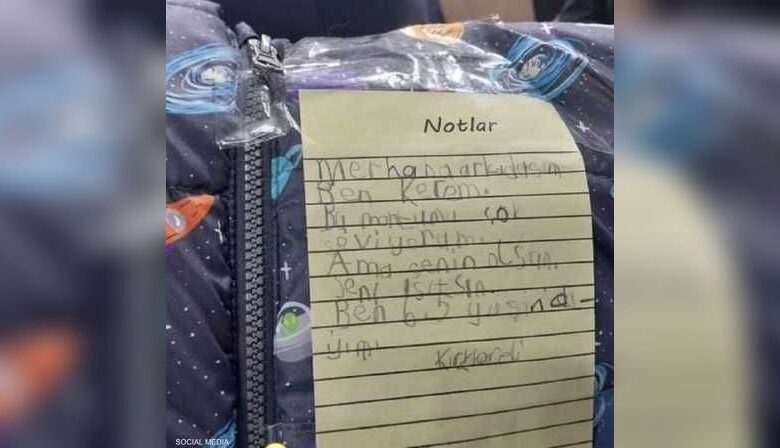 Notlar
Merhaba arkadaşım
Ben Kerem.
Bu montumu çok
seviyorum.
Ama senin olsun.
Seni ısıtsın.
Ben 6.5 yaşında-
yım
Kırklareli
SOCIAL MEDIA